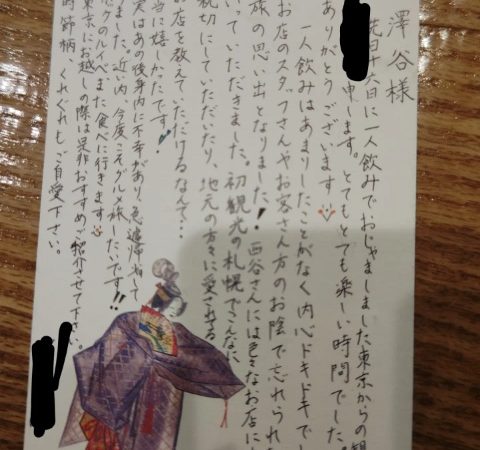 澤谷様
先日十六日に一人飲みでおじゃましました東京からの
申します。とてもとても楽しい時間でした。
ありがとうございます
一人飲みはあまりしたことがなく内心ドキドキでし
お店のスタッフさんやお客さん方のお陰で忘れられ
旅の思い出となりました!西谷さんには色々なお店に
いていただきました。初観光の札幌でこんなに
親切にしていただいたり、地元の方々に愛される
お店を教えていただけるなんて…
当に嬉しかったです!
実はあの後身内に不幸があり、急遽帰宅して
いました。近い内、今度こそグルメ旅したいです!!
のルイベまた食べに行きます
東京にお越しの際は是非おすすめご紹介させて下さい。
時節柄、くれぐれもご自愛下さい。